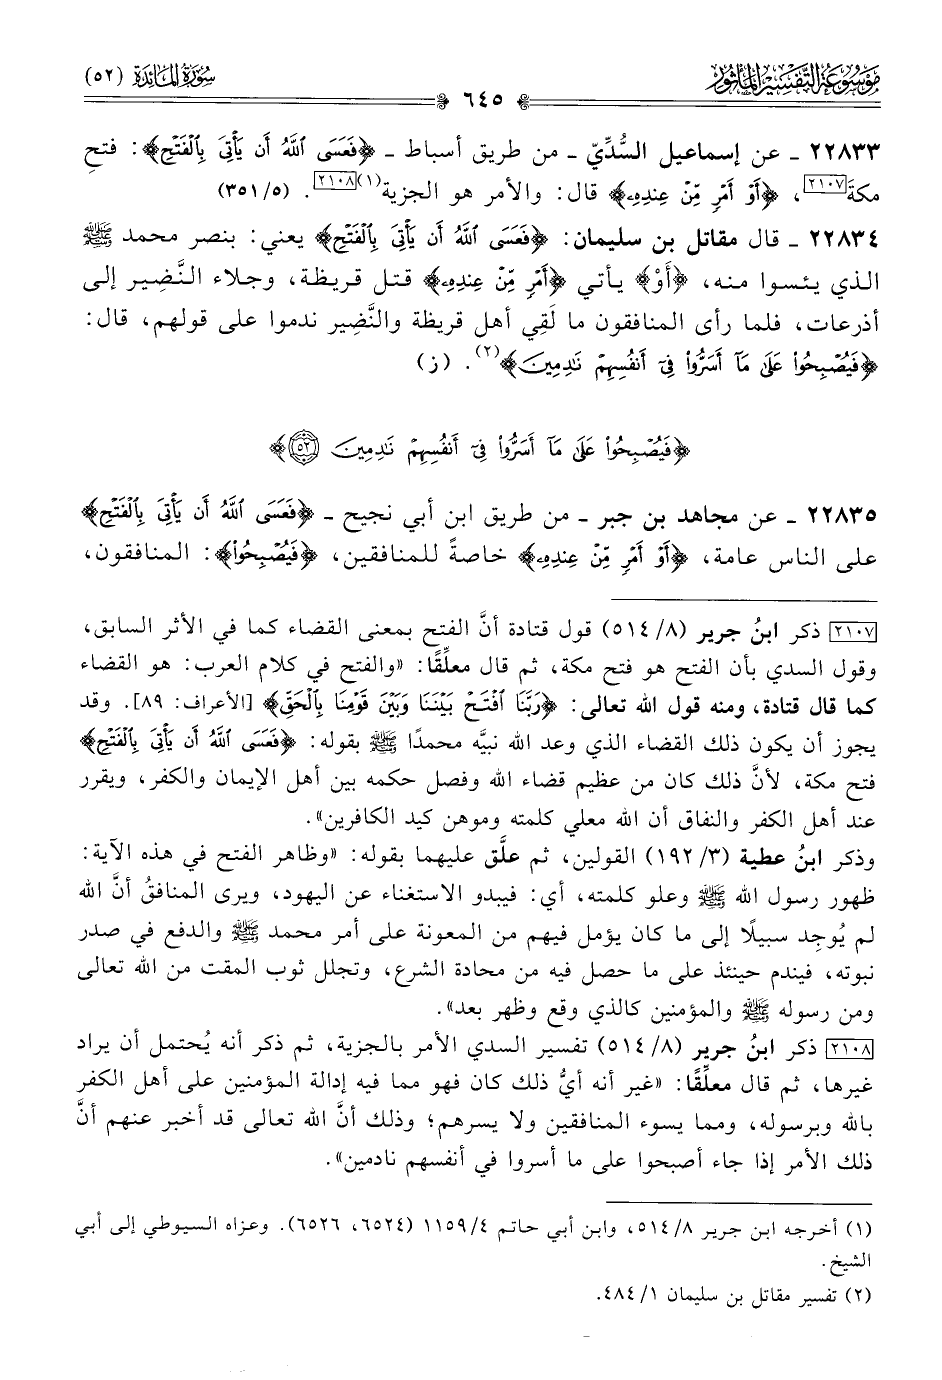 موسوعة التفسير المأثور
سورة المائدة (٥٢)
٦٤٥
٢٢٨٣٣ ـ عن إسماعيل السُّدِّيّ ـ من طريق أسباط ـ ﴿فَعَسَى ٱللَّهُ أَن يَأْتِىَ بِٱلْفَتْحِ﴾: فتحِ
مكةَ[٢١٠٧]، ﴿أَوْ أَمْرٍ مِّنْ عِندِهِۦ﴾ قال: والأمر هو الجزية(١)[٢١٠٨]. (٣٥١/٥)
٢٢٨٣٤ ـ قال مقاتل بن سليمان: ﴿فَعَسَى ٱللَّهُ أَن يَأْتِىَ بِٱلْفَتْحِ﴾ يعني: بنصر محمد ﷺ
الذي يئسوا منه، ﴿أَوْ﴾ يأتي ﴿أَمْرٍ مِّنْ عِندِهِۦ﴾ قتل قريظة، وجلاء النَّضِير إلى
أذرعات، فلما رأى المنافقون ما لَقِي أهل قريظة والنَّضِير ندموا على قولهم، قال:
﴿فَيُصْبِحُوا۟ عَلَىٰ مَآ أَسَرُّوا۟ فِىٓ أَنفُسِهِمْ نَـٰدِمِينَ﴾(٢). (ز)
﴿فَيُصْبِحُوا۟ عَلَىٰ مَآ أَسَرُّوا۟ فِىٓ أَنفُسِهِمْ نَـٰدِمِينَ ۝٥٢﴾
٢٢٨٣٥ ـ عن مجاهد بن جبر ـ من طريق ابن أبي نجيح ـ ﴿فَعَسَى ٱللَّهُ أَن يَأْتِىَ بِٱلْفَتْحِ﴾
على الناس عامة، ﴿أَوْ أَمْرٍ مِّنْ عِندِهِۦ﴾ خاصةً للمنافقين، ﴿فَيُصْبِحُوا۟﴾: المنافقون،
[٢١٠٧] ذكر ابنُ جرير (٥١٤/٨) قول قتادة أنَّ الفتح بمعنى القضاء كما في الأثر السابق،
وقول السدي بأن الفتح هو فتح مكة، ثم قال معلِّقًا: «والفتح في كلام العرب: هو القضاء
كما قال قتادة، ومنه قول الله تعالى: ﴿رَبَّنَا ٱفْتَحْ بَيْنَنَا وَبَيْنَ قَوْمِنَا بِٱلْحَقِّ﴾ [الأعراف: ٨٩]. وقد
يجوز أن يكون ذلك القضاء الذي وعد الله نبيَّه محمدًا ﷺ بقوله: ﴿فَعَسَى ٱللَّهُ أَن يَأْتِىَ بِٱلْفَتْحِ﴾
فتح مكة، لأنَّ ذلك كان من عظيم قضاء الله وفصل حكمه بين أهل الإيمان والكفر، ويقرر
عند أهل الكفر والنفاق أن الله معلي كلمته وموهن كيد الكافرين».
وذكر ابنُ عطية (١٩٢/٣) القولين، ثم علَّق عليهما بقوله: «وظاهر الفتح في هذه الآية:
ظهور رسول الله ﷺ وعلو كلمته، أي: فيبدو الاستغناء عن اليهود، ويرى المنافقُ أنَّ الله
لم يُوجِد سبيلًا إلى ما كان يؤمل فيهم من المعونة على أمر محمد ﷺ والدفع في صدر
نبوته، فيندم حينئذ على ما حصل فيه من محادة الشرع، وتجلل ثوب المقت من الله تعالى
ومن رسوله ﷺ والمؤمنين كالذي وقع وظهر بعد».
[٢١٠٨] ذكر ابنُ جرير (٥١٤/٨) تفسير السدي الأمر بالجزية، ثم ذكر أنه يُحتمل أن يراد
غيرها، ثم قال معلِّقًا: «غير أنه أيُّ ذلك كان فهو مما فيه إدالة المؤمنين على أهل الكفر
بالله وبرسوله، ومما يسوء المنافقين ولا يسرهم؛ وذلك أنَّ الله تعالى قد أخبر عنهم أنَّ
ذلك الأمر إذا جاء أصبحوا على ما أسروا في أنفسهم نادمين».
(١) أخرجه ابن جرير ٥١٤/٨، وابن أبي حاتم ١١٥٩/٤ (٦٥٢٤، ٦٥٢٦). وعزاه السيوطي إلى أبي
الشيخ.
(٢) تفسير مقاتل بن سليمان ٤٨٤/١.